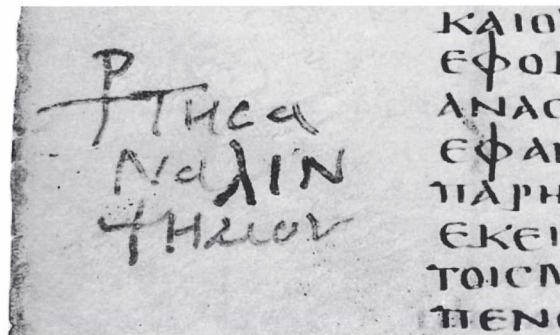 ⳨ ΤΗϹΑ
ΝΑΛΙΝ
ΨΗϹΙΟΥ
ΚΑΙΟΥ
ΕΦΟΒ
ΑΝΑϹ
ΕΦΑΝ
ΠΑΡΗ
ΕΚΕΙ
ΤΟΙϹΜ
ΠΕΝ